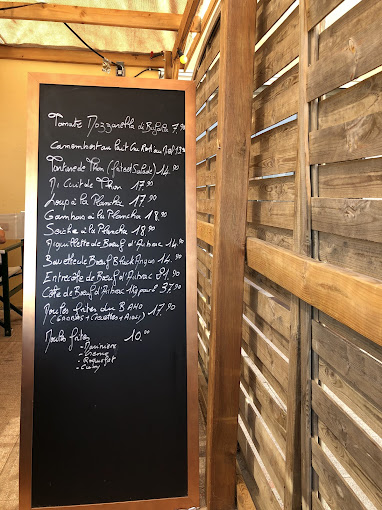 Tomate Mozzarella di Bufala 7.90
Camembert au Lait Cru Rôti au Miel 13.90
Tartare de Thon (frites Salade) 14.90
Mi Cuit de Thon 17.90
Loup à la Plancha 17.90
Gambas à la Plancha 18.90
Seiche à la Plancha 18.90
Aiguillette de Boeuf d'Aubrac 14.90
Bavette de Boeuf Black Angus 14.90
Entrecôte de Boeuf d'Aubrac 21.90
Côte de Boeuf d'Aubrac 1kg pour 2 37.90
Moules frites du BAHO 17.90
(Gambas + Crevettes + Aïoli)
Moules frites 10.00
- Marinière
- Crème
- Roquefort
- Curry